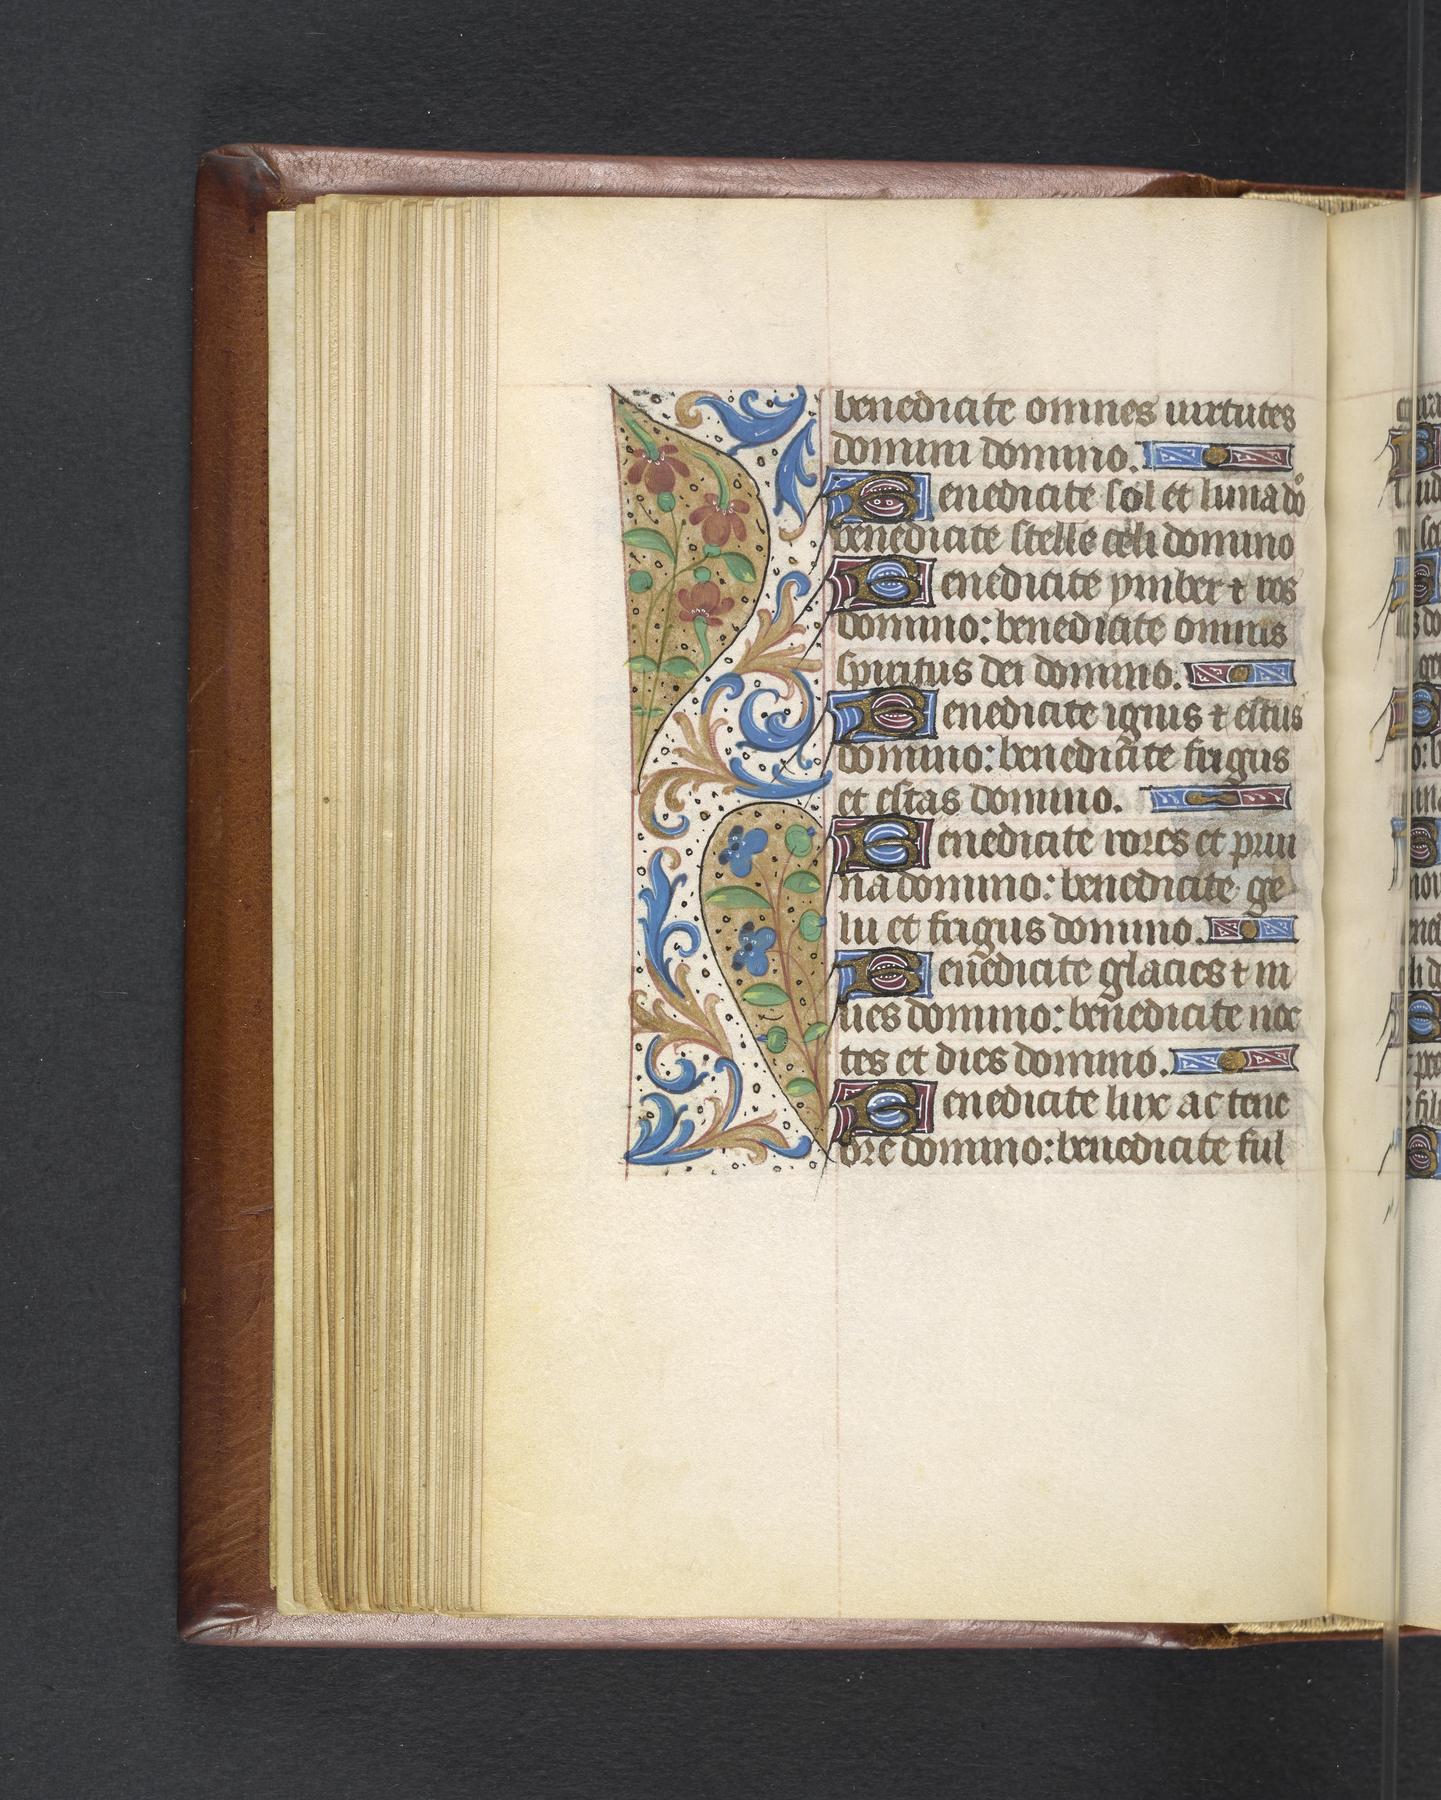 benedicite omnes uirtutes
domini domino.
Benedicite sol et luna do
benedicite stelle celi domino
Benedicite ymber ⁊ ros
domino: benedicite omnis
spiritus dei domino.
Benedicite ignis ⁊ estus
domino: benedicite frigus
et estas domino.
Benedicite rores et prui
na domino: benedicite ge
lu et frigus domino.
Benedicite glacies ⁊ ni
ues domino: benedicite noc
tes et dies domino.
Benedicite lux ac tene
bre domino: benedicite ful